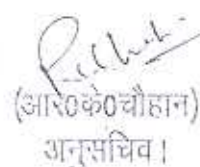 (आर0के0चौहान)
अनुसचिव।